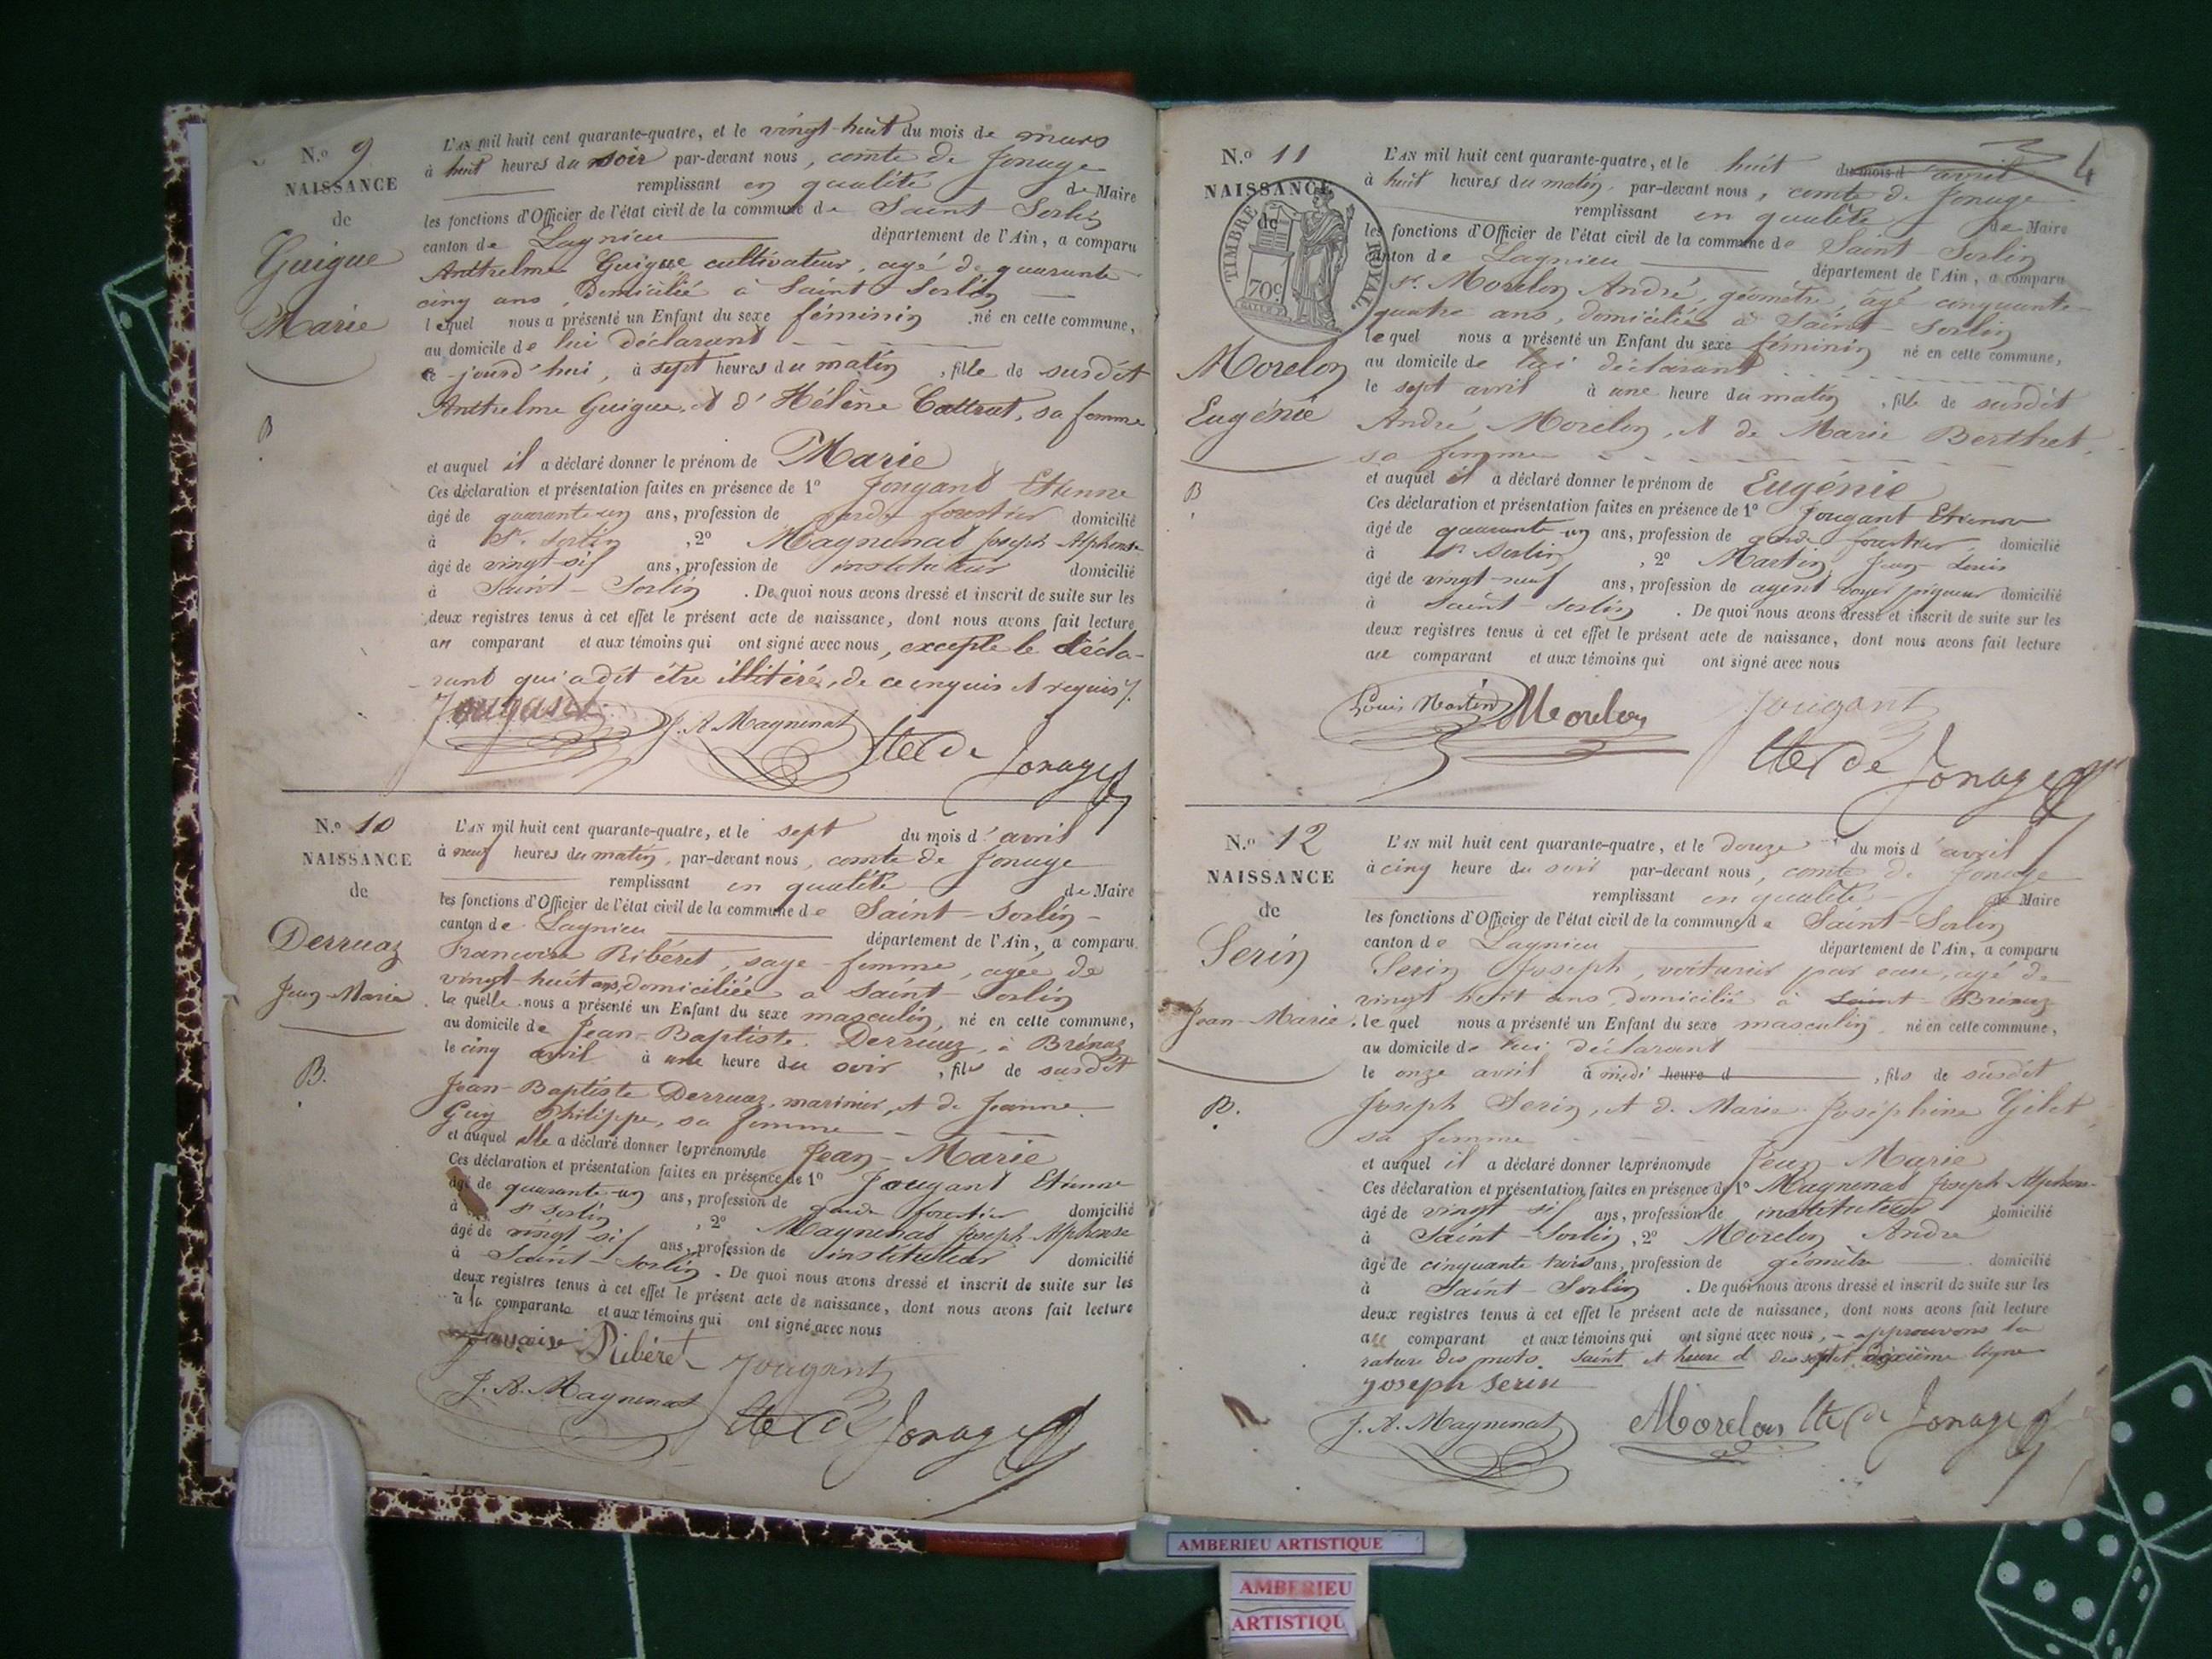 N.o 9
NAISSANCE
de
Guigue
Marie
B
L'AN mil huit cent quarante-quatre, et le vingt-huit du mois de mars
à huit heures du soir par-devant nous, comte de Jonage
remplissant en qualité de Maire
les fonctions d'Officier de l'état civil de la commune de Saint-Sorlin
canton de Lagnieu département de l'Ain, a comparu
Anthelme Guigue cultivateur, agé de quarante-
cinq ans, Domicilié à Saint-Sorlin
lequel nous a présenté un Enfant du sexe féminin né en cette commune,
au domicile de lui déclarant
ce-jourd'hui, à sept heures du matin, fille de susdit
Anthelme Guigue, et d'Hélène Cottrat, sa femme
et auquel il a déclaré donner le prénom de Marie
Ces déclaration et présentation faites en présence de 1o Jougant Etienne
âgé de quarante-un ans, profession de garde forestier domicilié
à St. Sorlin, 2o Magnenat Joseph Alphonse
âgé de vingt-six ans, profession de instituteur domicilié
à Saint-Sorlin. De quoi nous avons dressé et inscrit de suite sur les
deux registres tenus à cet effet le présent acte de naissance, dont nous avons fait lecture
au comparant et aux témoins qui ont signé avec nous, excepte le décla-
rant qui a dit être illitéré, de ce enquis et requis
Jougant
J. A. Magnenat
Cte de Jonage
N.o 10
NAISSANCE
de
Derruaz
Jean-Marie
B.
L'AN mil huit cent quarante-quatre, et le sept du mois d'avril
à neuf heures du matin, par-devant nous, comte de Jonage
remplissant en qualité de Maire
les fonctions d'Officier de l'état civil de la commune de Saint-Sorlin
canton de Lagnieu département de l'Ain, a comparu
Françoise Ribéret, sage-femme, agée de
vingt-huit ans, domiciliée à Saint-Sorlin
laquelle nous a présenté un Enfant du sexe masculin, né en cette commune,
au domicile de Jean-Baptiste Derruaz, à Brénaz
le cinq avril à une heure du soir, fils de susdit
Jean-Baptiste Derruaz, marinier, et de Jeanne
Guy Philippe, sa femme
et auquel elle a déclaré donner les prénoms de Jean-Marie
Ces déclaration et présentation faites en présence de 1o Jougant Etienne
âgé de quarante-un ans, profession de garde forestier domicilié
à St Sorlin, 2o Magnenat Joseph Alphonse
âgé de vingt six ans, profession de instituteur domicilié
à Saint-Sorlin. De quoi nous avons dressé et inscrit de suite sur les
deux registres tenus à cet effet le présent acte de naissance, dont nous avons fait lecture
à la comparante et aux témoins qui ont signé avec nous
Ribéret
Jougant
J. A. Magnenat
Cte de Jonage
4
N.o 11
NAISSANCE
de
TIMBRE ROYAL
70c
Morelon
Eugénie
B
L'AN mil huit cent quarante-quatre, et le huit du mois d'avril
à huit heures du matin, par-devant nous, comte de Jonage
remplissant en qualité de Maire
les fonctions d'Officier de l'état civil de la commune de Saint-Sorlin
canton de Lagnieu département de l'Ain, a comparu
Sr. Morelon André, géomètre, âgé cinquante-
quatre ans, domicilié à Saint-Sorlin
lequel nous a présenté un Enfant du sexe féminin né en cette commune,
au domicile de lui déclarant
le sept avril à une heure du matin, fille de susdit
André Morelon, et de Marie Berthet,
sa femme
et auquel il a déclaré donner le prénom de Eugénie
Ces déclaration et présentation faites en présence de 1o Jougant Etienne
âgé de quarante-un ans, profession de garde forestier domicilié
à St Sorlin, 2o Martin Jean-Louis
âgé de vingt-neuf ans, profession de agent-voyer piqueur domicilié
à Saint-Sorlin. De quoi nous avons dressé et inscrit de suite sur les
deux registres tenus à cet effet le présent acte de naissance, dont nous avons fait lecture
au comparant et aux témoins qui ont signé avec nous
Louis Martin
Morelon
Jougant
Cte de Jonage
N.o 12
NAISSANCE
de
Serin
Jean-Marie
B.
L'AN mil huit cent quarante-quatre, et le douze du mois d'avril
à cinq heure du soir par-devant nous, comte de Jonage
remplissant en qualité de Maire
les fonctions d'Officier de l'état civil de la commune de Saint-Sorlin
canton de Lagnieu département de l'Ain, a comparu
Serin Joseph, voiturier par eau, agé de
vingt huit ans, domicilié à Saint-Brénaz
lequel nous a présenté un Enfant du sexe masculin né en cette commune,
au domicile de lui déclarant
le onze avril à midi heure d, fils de susdit
Joseph Serin, et de Marie Joséphine Gilet
sa femme
et auquel il a déclaré donner les prénoms de Jean-Marie
Ces déclaration et présentation faites en présence de 1o Magnenat Joseph Alphonse
âgé de vingt six ans, profession de instituteur domicilié
à Saint-Sorlin, 2o Morelon André
âgé de cinquante trois ans, profession de géomètre domicilié
à Saint-Sorlin. De quoi nous avons dressé et inscrit de suite sur les
deux registres tenus à cet effet le présent acte de naissance, dont nous avons fait lecture
au comparant et aux témoins qui ont signé avec nous, - approuvons la
rature des mots saint et heure d des sept et dixième ligne
Joseph Serin
J. A. Magnenat
Morelon
Cte de Jonage
AMBERIEU ARTISTIQUE
AMBERIEU
ARTISTIQU